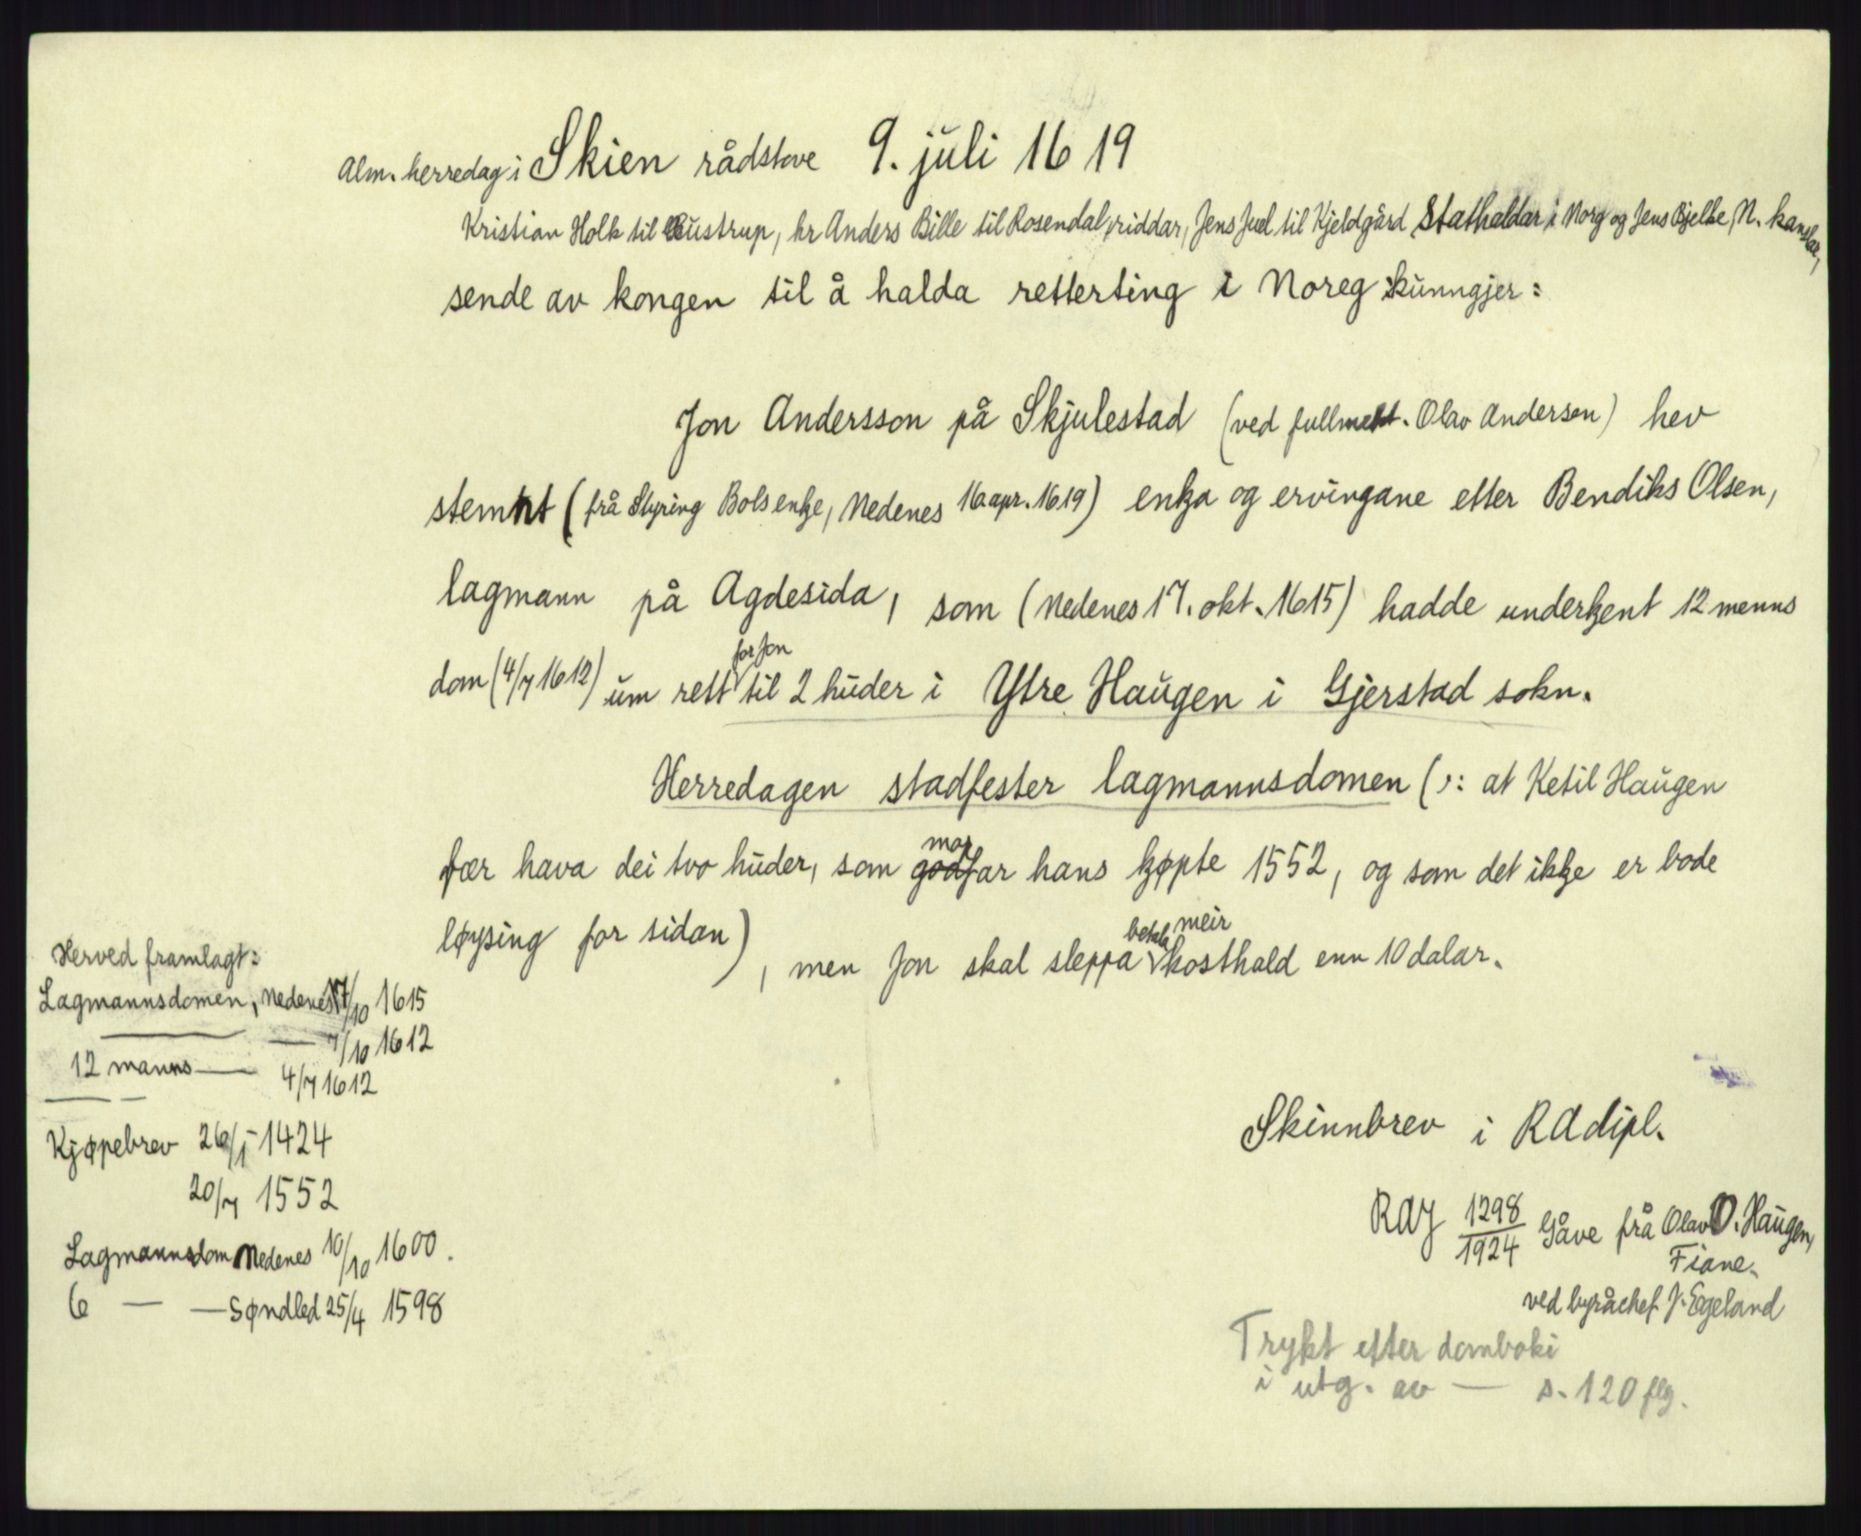 Alm. herredag i Skien rådstove 9. juli 1619
Kristian Holk til Bustrup, hr Anders Bille til Rosendal, riddar, Jens Juel til Kjeldgård Stathaldar i Norg og Jens Bjelke, N. kanslar,
sende av kongen til å halda retterting i Noreg kunngjer:
Jon Andersson på Skjulestad (ved fullmekt. Olav Anderson) hev
stemnt (frå Styring Bolsenke, Nedenes 16 apr. 1619) enkja og ervingane etter Bendiks Olsen,
lagmann på Agdesida, som (Nedenes 17. okt. 1615) hadde underkjent 12 menns
dom (4/7 1612) um rett for Jon til 2 huder i Ytre Haugen i Gjerstad sokn.
Herredagen stadfester lagmannsdomen (ɔ: at Ketil Haugen
fær hava dei tvo huder, som godfar morfar hans kjøpte 1552, og som det ikkje er bode
løysing for sidan), men Jon skal sleppa betala meir kosthald enn 10 dalar.
Herved framlagt:
Lagmannsdomen, Nedenes 17/10 1615
— — 7/10 1612
12 manns — 4/7 1612
Kjøpebrev 26/5 1424
20/7 1552
Lagmannsdom Nedenes 10/10 1600.
6 — — Søndled 25/4 1598
Skinnbrev i RA dipl.
RAJ 1298/1924 Gåve frå Olav O. Haugen,
Fiane.
ved byråchef J. Egeland
Trykt efter domboki
i utg. av — s. 120 flg.